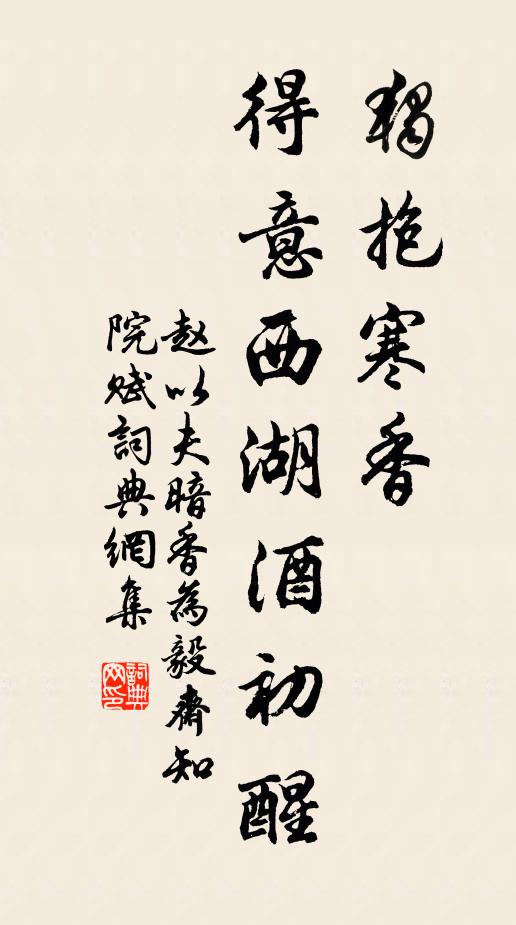 独抱寒香
得意西湖酒初醒
赵以夫暗香為毅齋知
院赋詞典網集
詞典網印